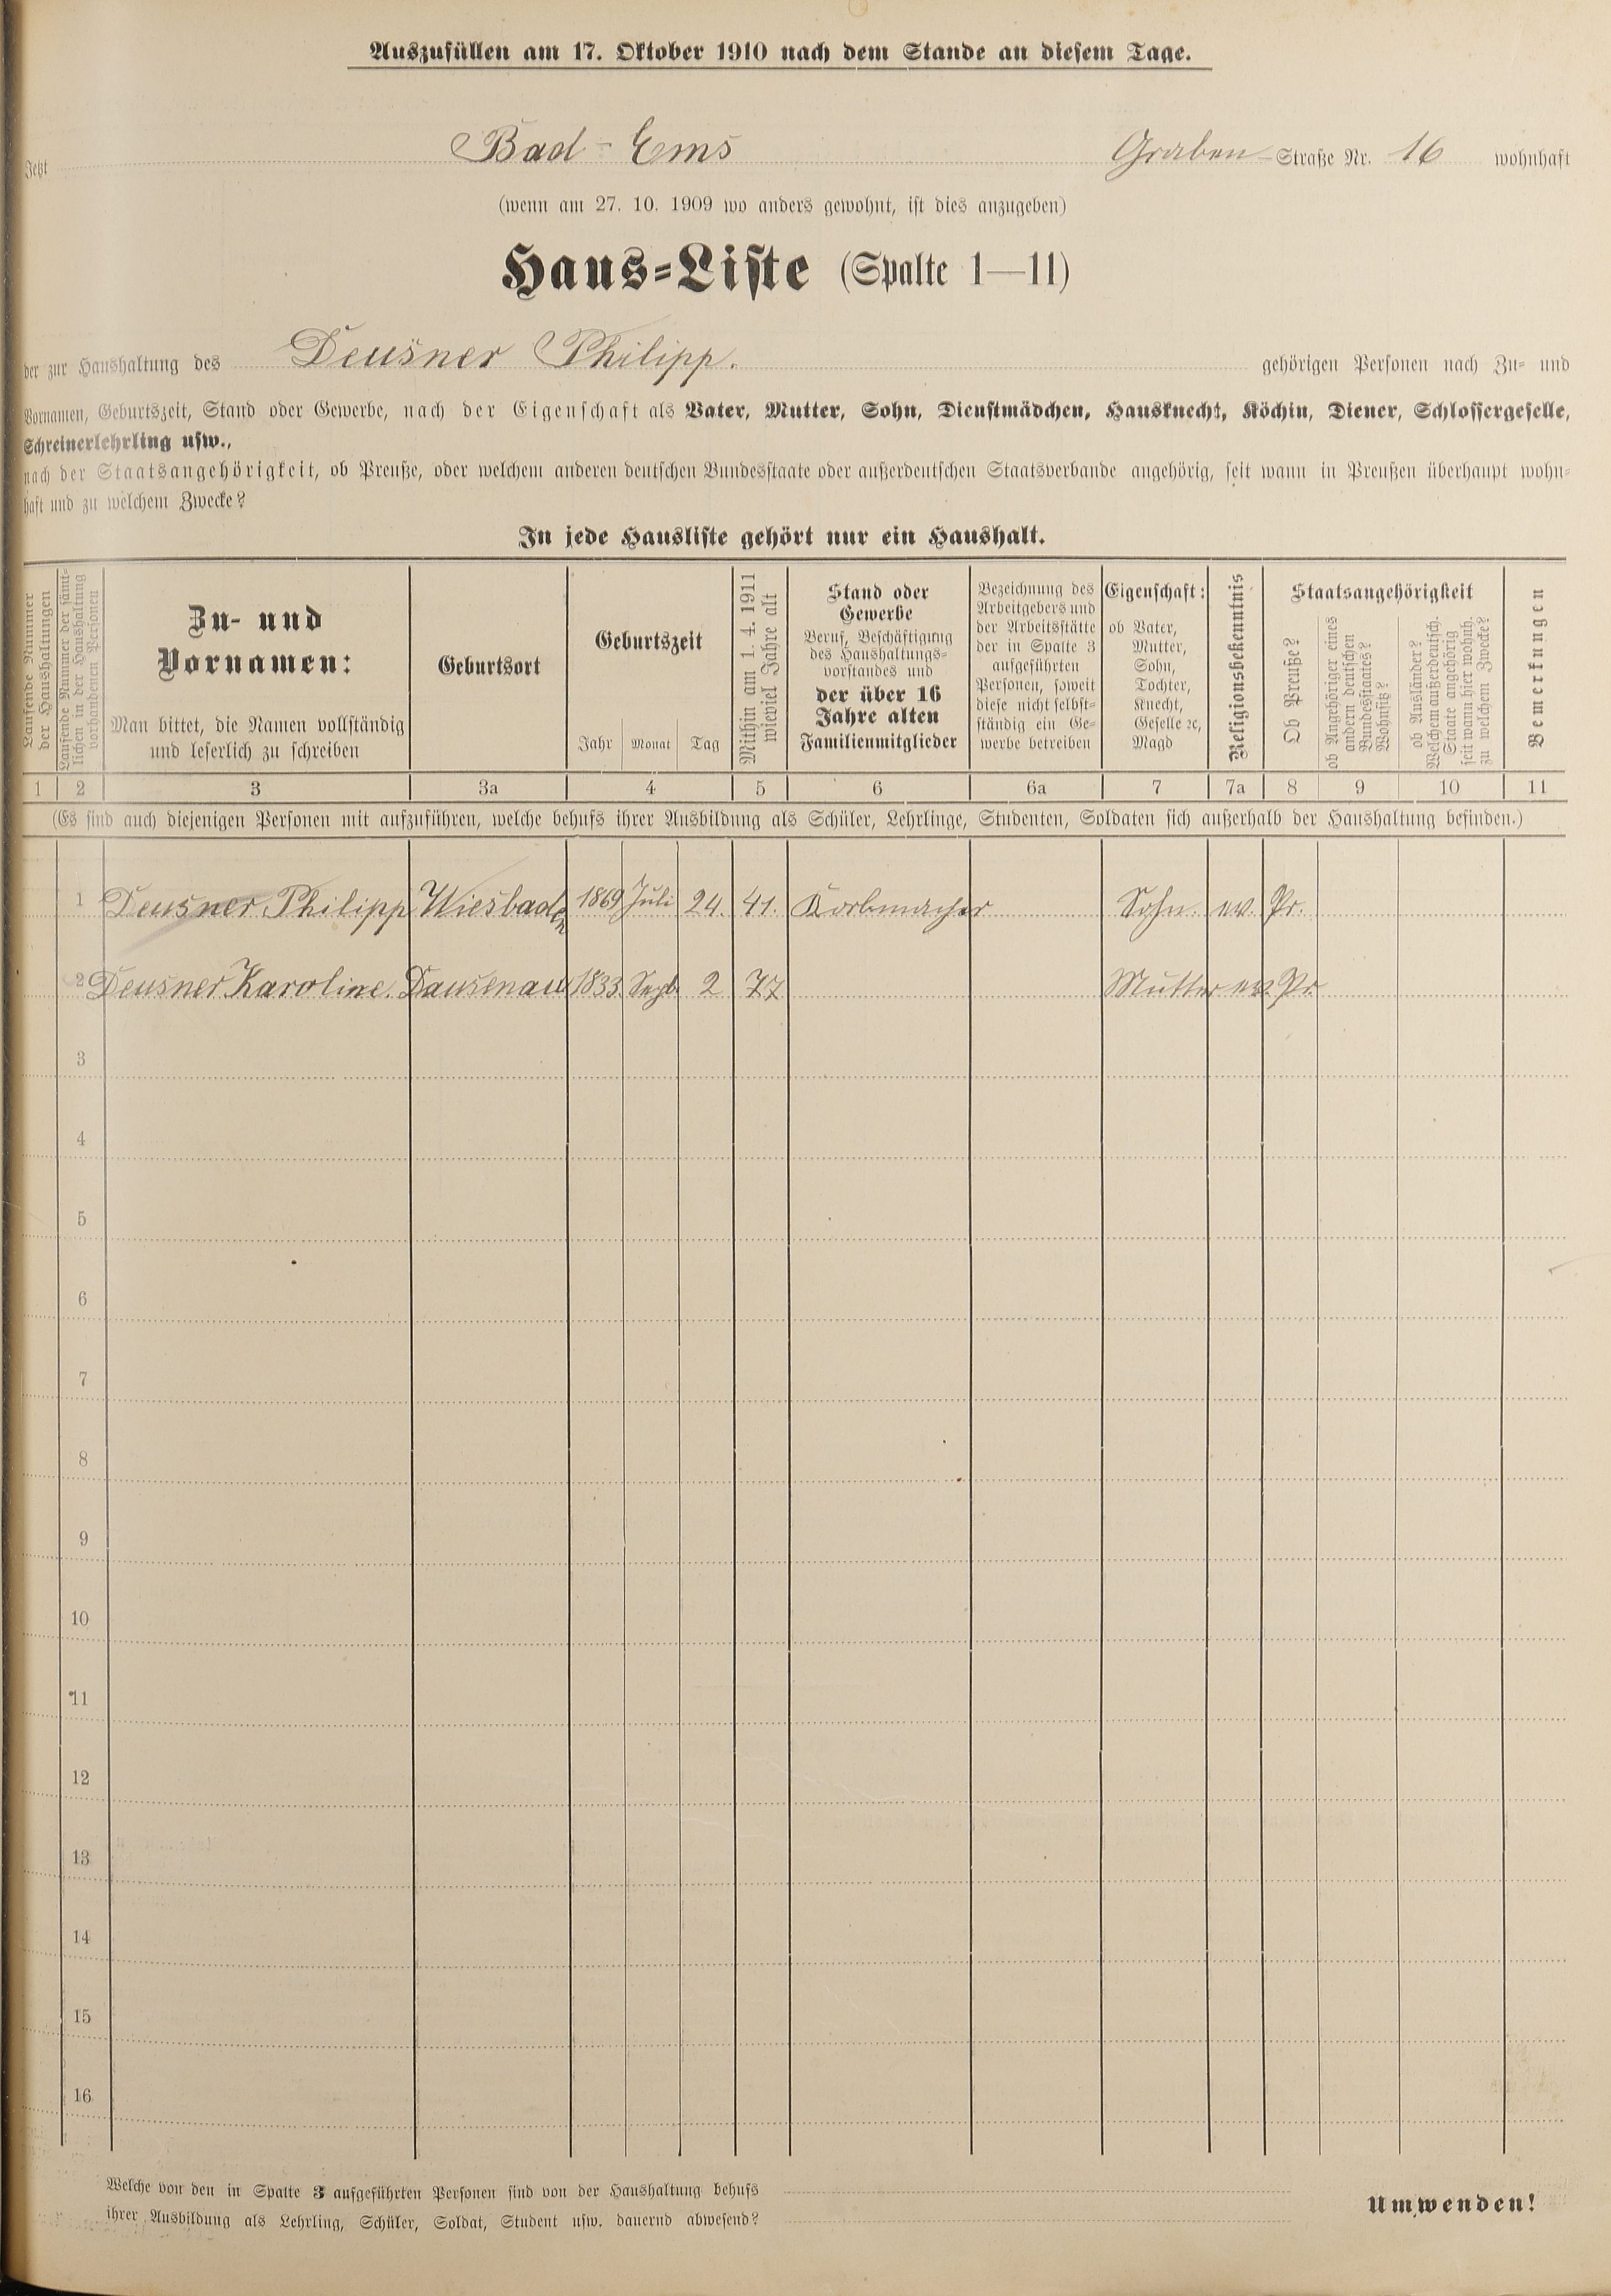 Auszufüllen am 17. Oktober 1910 nach dem Stande an diesem Tage.
Jetzt Bad-Ems Graben-Straße Nr. 16 wohnhaft
(wenn am 27. 10. 1909 wo anders gewohnt, ist dies anzugeben)
Haus-Liste (Spalte 1—11)
der zur Haushaltung des Deusner Philipp. gehörigen Personen nach Zu- und
Vornamen, Geburtszeit, Stand oder Gewerbe, nach der Eigenschaft als Vater, Mutter, Sohn, Dienstmädchen, Hausknecht, Köchin, Diener, Schlossergeselle,
Schreinerlehrling usw.,
nach der Staatsangehörigkeit, ob Preuße, oder welchem anderen deutschen Bundesstaate oder außerdeutschen Staatsverbande angehörig, seit wann in Preußen überhaupt wohn-
haft und zu welchem Zwecke?
In jede Hausliste gehört nur ein Haushalt.
Laufende Nummer
der Haushaltungen
Laufende Nummer der sämt-
lichen in der Haushaltung
vorhandenen Personen
Zu- und
Vornamen:
Man bittet, die Namen vollständig
und leserlich zu schreiben
Geburtsort
Geburtszeit
Jahr Monat Tag
Mithin am 1. 4. 1911
wieviel Jahre alt
Stand oder
Gewerbe
Beruf, Beschäftigung
des Haushaltungs-
vorstandes und
der über 16
Jahre alten
Familienmitglieder
Bezeichnung des
Arbeitgebers und
der Arbeitsstätte
der in Spalte 3
aufgeführten
Personen, soweit
diese nicht selbst-
ständig ein Ge-
werbe betreiben
Eigenschaft:
ob Vater,
Mutter,
Sohn,
Tochter,
Knecht,
Geselle ꝛc,
Magd
Religionsbekenntnis
Staatsangehörigkeit
Ob Preuße?
ob Angehöriger eines
andern deutschen
Bundesstaates?
Wohnsitz?
ob Ausländer?
Welchem außerdeutsch.
Staate angehörig
seit wann hier wohnh.
zu welchem Zwecke?
Bemerkungen
1 2 3 3a 4 5 6 6a 7 7a 8 9 10 11
(Es sind auch diejenigen Personen mit aufzuführen, welche behufs ihrer Ausbildung als Schüler, Lehrlinge, Studenten, Soldaten sich außerhalb der Haushaltung befinden.)
1 Deusner Philipp Wiesbaden 1869 Juli 24. 41. Korbmacher Sohn. ev. Pr.
2 Deusner Karoline. Dausenau 1833 Sepb. 2 77 Mutter ev. Pr.
3
4
5
6
7
8
9
10
11
12
13
14
15
16
Welche von den in Spalte 3 aufgeführten Personen sind von der Haushaltung behufs
ihrer Ausbildung als Lehrling, Schüler, Soldat, Student usw. dauernd abwesend?
Umwenden!